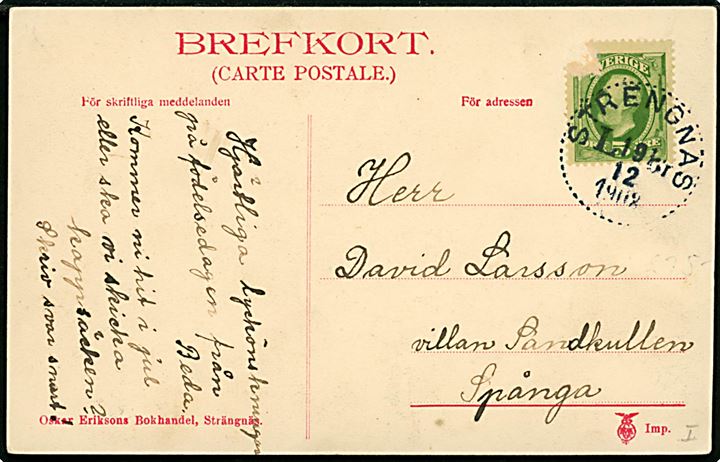 BREFKORT.
(CARTE POSTALE.)
För skriftliga meddelanden
För adressen
SVERIGE
STRENGNÄS
12
1908
Hjärtliga lyckönskningar
på födelsedagen från
Beda.
Kommer ni hit i jul
eller ska vi skicka
kappsäcken?
Skriv svar snart!
Herr
David Larsson
villan Sandkullen
Spånga
Oskar Eriksons Bokhandel, Strängnäs.
Imp.
I